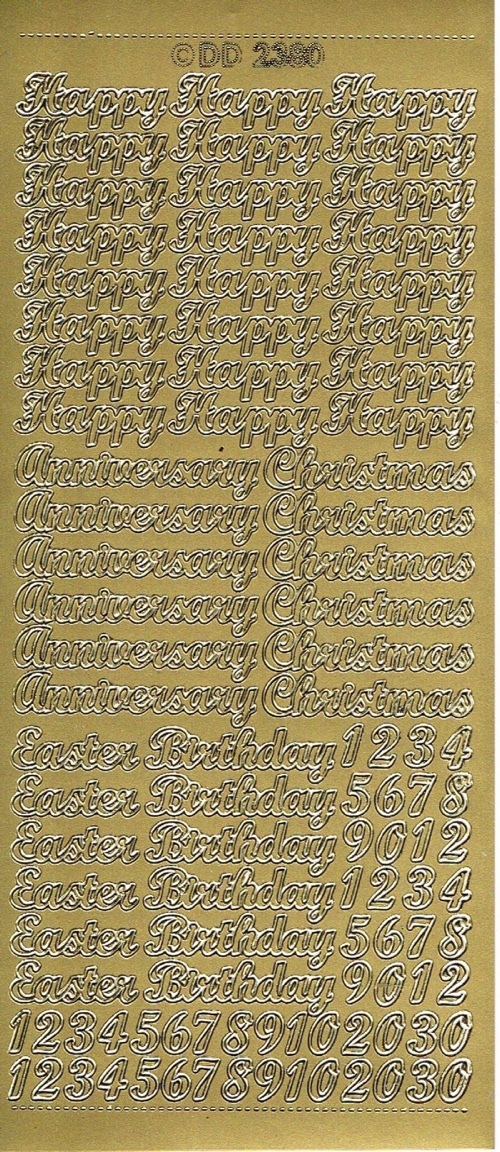 ©DD 2380
Happy Happy Happy
Happy Happy Happy
Happy Happy Happy
Happy Happy Happy
Happy Happy Happy
Happy Happy Happy
Happy Happy Happy
Happy Happy Happy
Anniversary Christmas
Anniversary Christmas
Anniversary Christmas
Anniversary Christmas
Anniversary Christmas
Anniversary Christmas
Easter Birthday 1 2 3 4
Easter Birthday 5 6 7 8
Easter Birthday 9 0 1 2
Easter Birthday 1 2 3 4
Easter Birthday 5 6 7 8
Easter Birthday 9 0 1 2
1 2 3 4 5 6 7 8 9 10 20 30
1 2 3 4 5 6 7 8 9 10 20 30